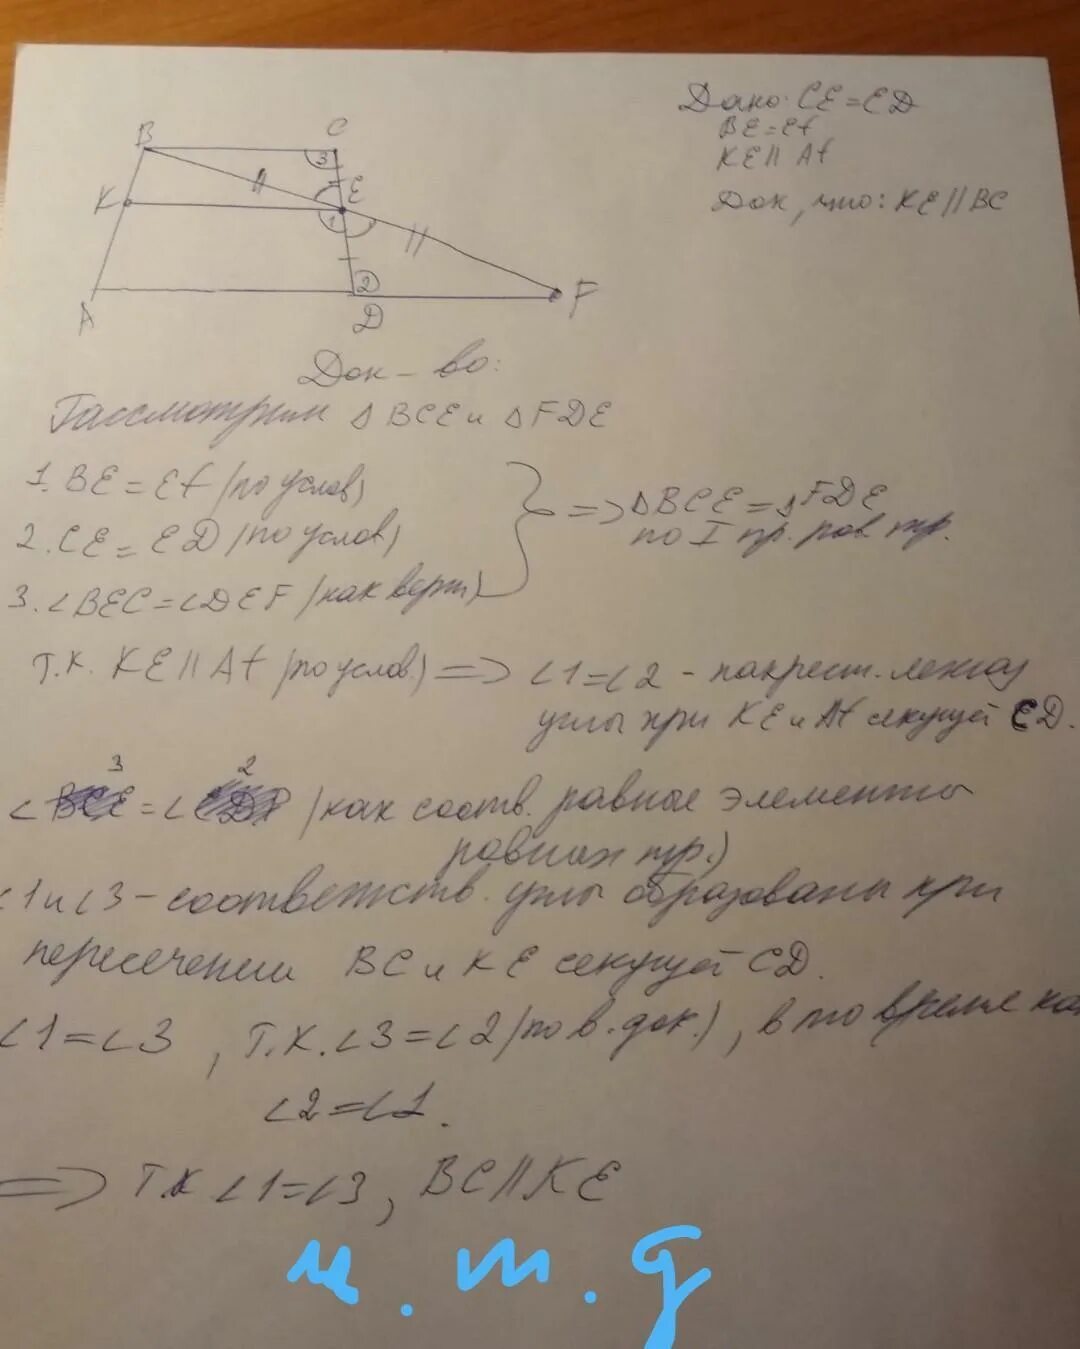 Дано: CE = ED
BE = Ef
KE || Af
Док, что: KE || BC
B
C
3
K
E
1
2
A
D
F
Док-во:
Рассмотрим △ BCE и △ FDE
1. BE = Ef (по услов)
2. CE = ED (по услов)
3. ∠BEC = ∠DEF (как верт)
=> △BCE = △FDE
по I пр. рав. тр.
Т.к. KE || Af (по услов.) => ∠1 = ∠2 - накрест. лежащ
углы при KE и Af секущей ED.
∠3 = ∠2 (как соотв. равные элементы
равных тр.)
∠1 и ∠3 - соответств. углы образованы при
пересечении BC и KE секущей CD.
∠1 = ∠3, т.к. ∠3 = ∠2 (по в. док.), в то время как
∠2 = ∠1.
=> Т.к ∠1 = ∠3, BC || KE
ч. т. д